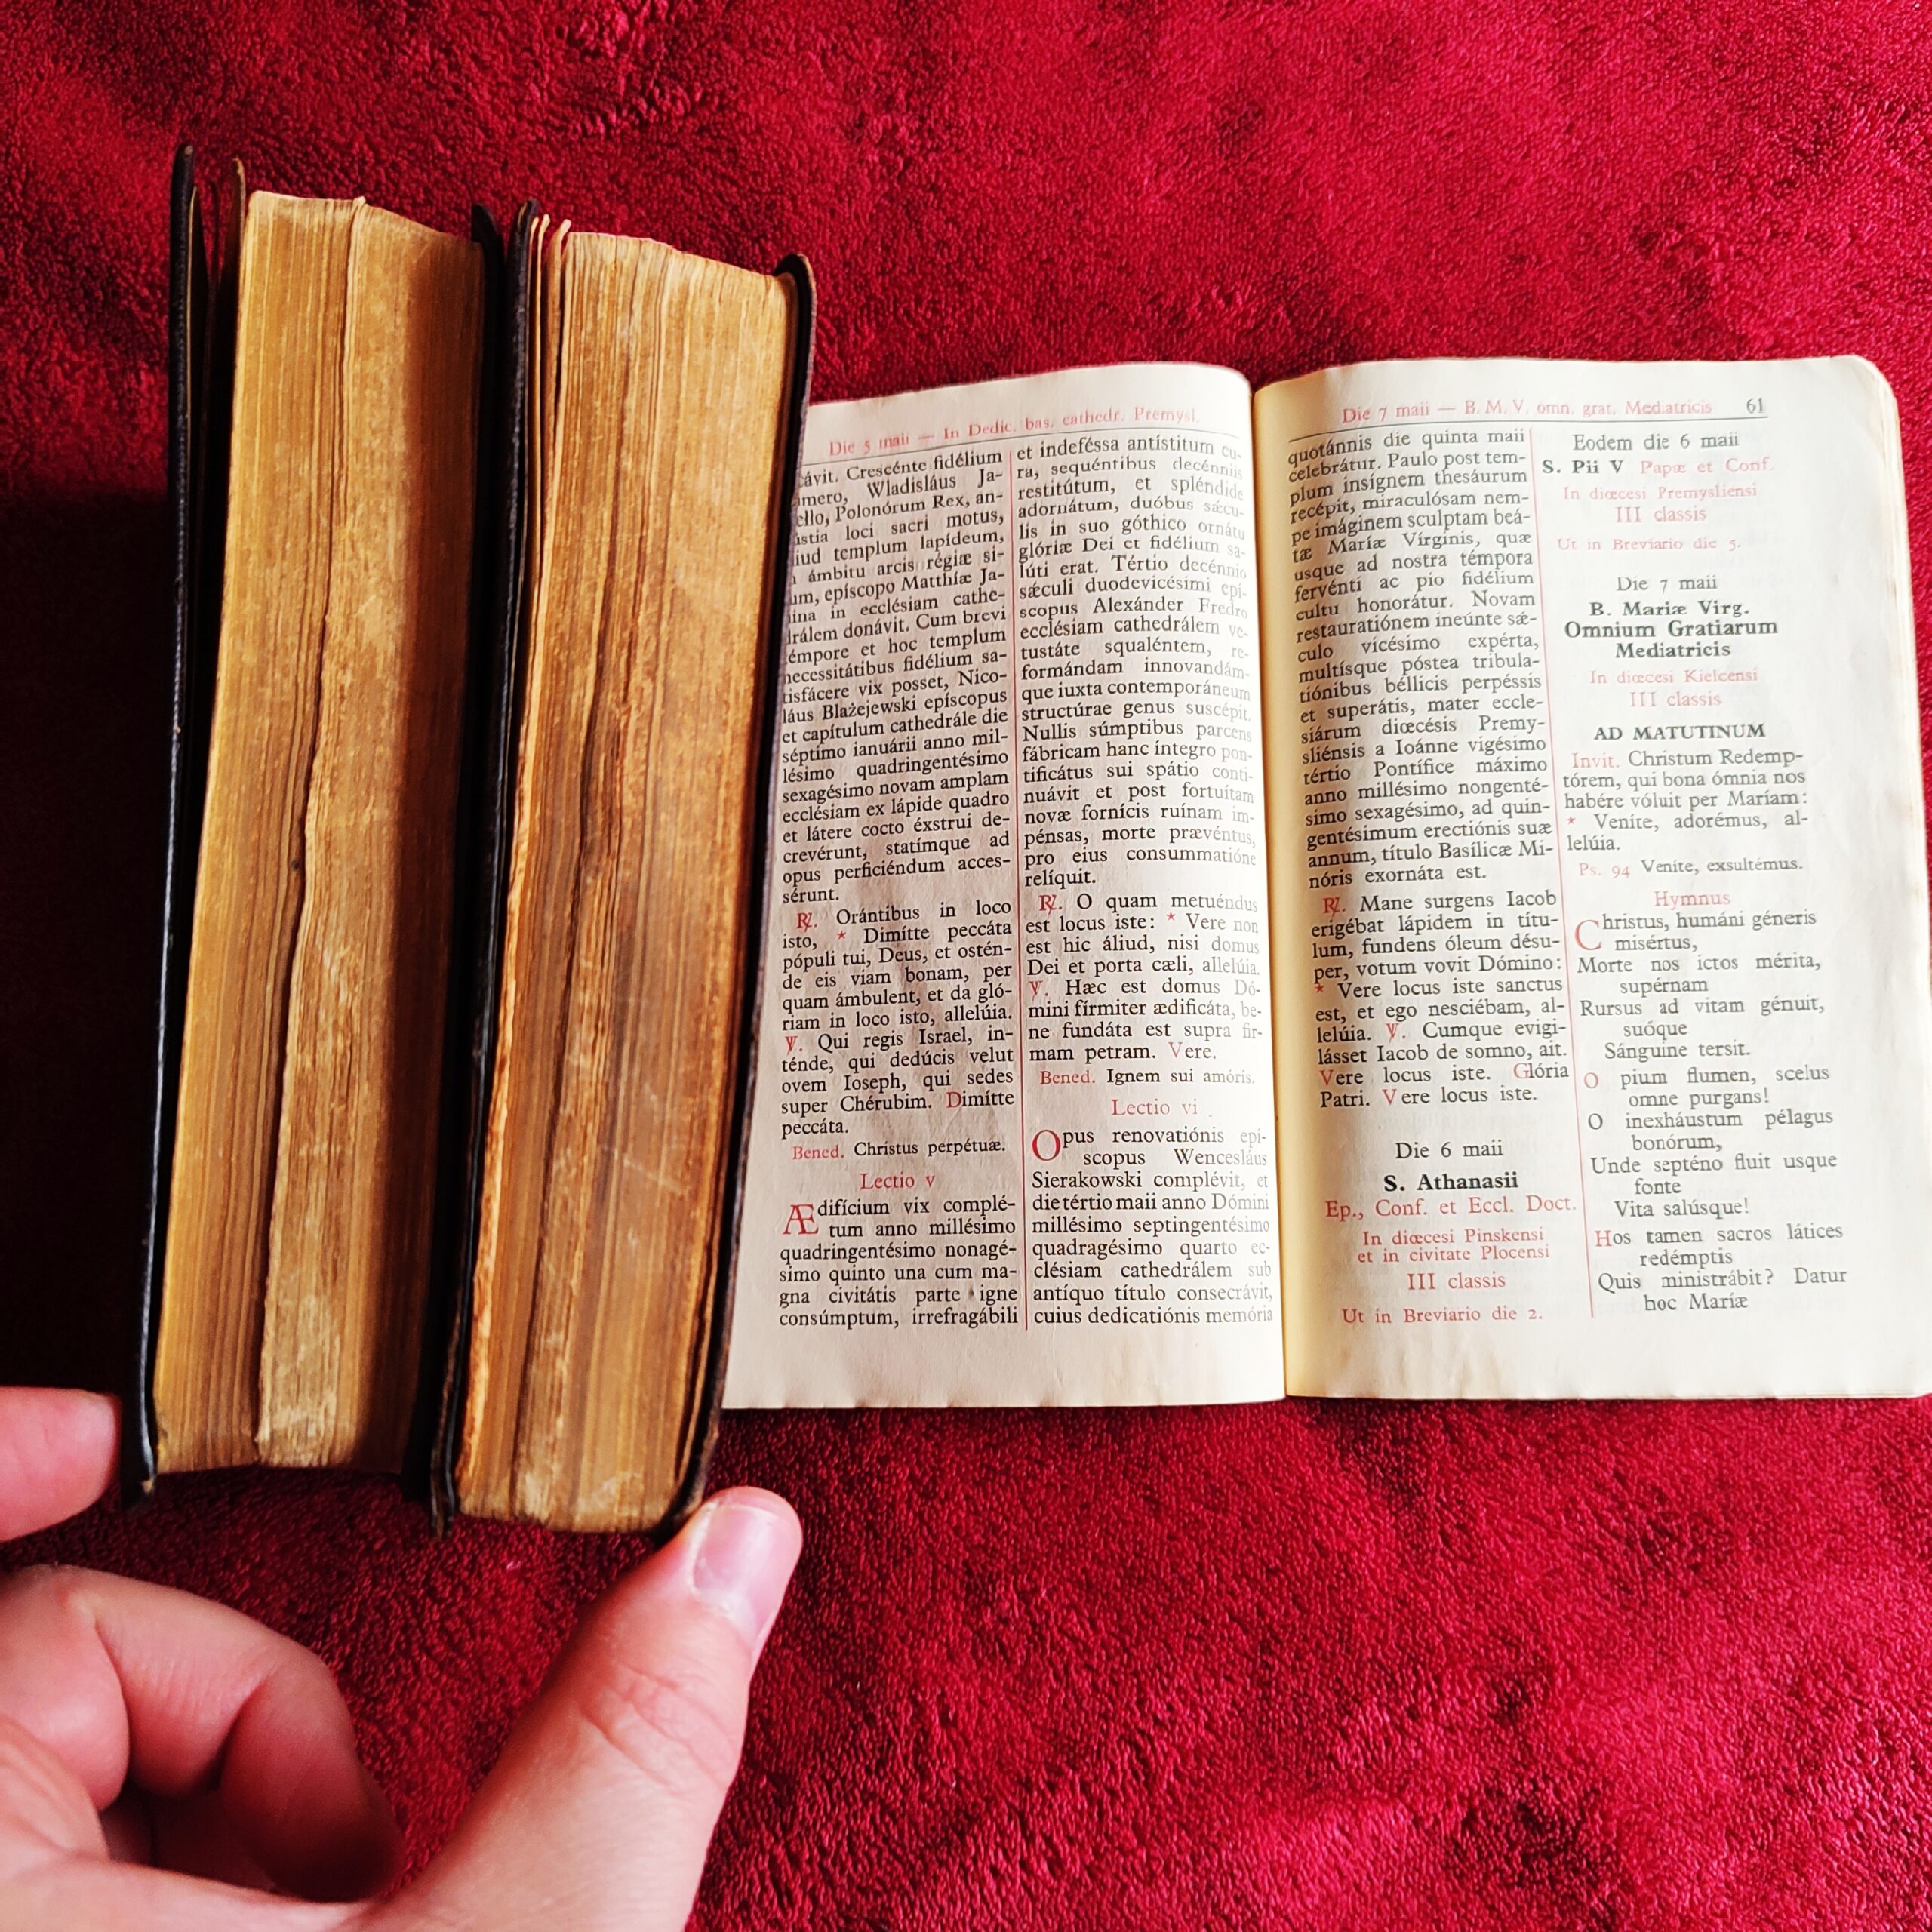 Die 5 maii — In Dedic. bas. cathedr. Premysl.
Crescénte fidélium
Wladisláus Ja-
Polonórum Rex, an-
loci sacri motus,
templum lapídeum,
ámbitu arcis régiæ si-
epíscopo Matthíæ Ja-
in ecclésiam cathe-
donávit. Cum brevi
et hoc templum
necessitátibus fidélium sa-
tisfácere vix posset, Nico-
láus Blażejewski epíscopus
et capítulum cathedrále die
séptimo ianuárii anno mil-
lésimo quadringentésimo
sexagésimo novam amplam
ecclésiam ex lápide quadro
et látere cocto éxstrui de-
crevérunt, statímque ad
opus perficiéndum acces-
sérunt.
℟. Orántibus in loco
isto, * Dimítte peccáta
pópuli tui, Deus, et ostén-
de eis viam bonam, per
quam ámbulent, et da gló-
riam in loco isto, allelúia.
℣. Qui regis Israel, in-
ténde, qui dedúcis velut
ovem Ioseph, qui sedes
super Chérubim. Dimítte
peccáta.
Bened. Christus perpétuæ.
Lectio v
Ædifícium vix complé-
tum anno millésimo
quadringentésimo nonagé-
simo quinto una cum ma-
gna civitátis parte igne
consúmptum, irrefragábili
et indeféssa antístitum cu-
ra, sequéntibus decénniis
restitútum, et spléndide
adornátum, duóbus sǽcu-
lis in suo góthico ornátu
glóriæ Dei et fidélium sa-
lúti erat. Tértio decénnio
sǽculi duodevicésimi epí-
scopus Alexánder Fredro
ecclésiam cathedrálem ve-
tustáte squaléntem, re-
formándam innovandám-
que iuxta contemporáneum
structúræ genus suscépit.
Nullis súmptibus parcens
fábricam hanc íntegro pon-
tificátus sui spátio conti-
nuávit et post fortúitam
novæ fornícis ruínam im-
pénsas, morte prævéntus,
pro eius consummatióne
relíquit.
℟. O quam metuéndus
est locus iste: * Vere non
est hic áliud, nisi domus
Dei et porta cæli, allelúia.
℣. Hæc est domus Dó-
mini fírmiter ædificáta, be-
ne fundáta est supra fir-
mam petram. Vere.
Bened. Ignem sui amóris.
Lectio vi
Opus renovatiónis epí-
scopus Wencesláus
Sierakowski complévit, et
die tértio maii anno Dómini
millésimo septingentésimo
quadragésimo quarto ec-
clésiam cathedrálem sub
antíquo título consecrávit,
cuius dedicatiónis memória
Die 7 maii — B. M. V. omn. grat. Mediatricis 61
quotánnis die quinta maii
celebrátur. Paulo post tem-
plum insígnem thesáurum
recépit, miraculósam nem-
pe imáginem sculptam beá-
tæ Maríæ Vírginis, quæ
usque ad nostra témpora
fervénti ac pio fidélium
cultu honorátur. Novam
restauratiónem ineúnte sǽ-
culo vicésimo expérta,
multísque póstea tribula-
tiónibus béllicis perpéssis
et superátis, mater eccle-
siárum diœcésis Premy-
sliénsis a Ioánne vigésimo
tértio Pontífice máximo
anno millésimo nongenté-
simo sexagésimo, ad quin-
gentésimum erectiónis suæ
annum, título Basílicæ Mi-
nóris exornáta est.
℟. Mane surgens Iacob
erigébat lápidem in títu-
lum, fundens óleum désu-
per, votum vovit Dómino:
* Vere locus iste sanctus
est, et ego nesciébam, al-
lelúia. ℣. Cumque evigi-
lásset Iacob de somno, ait.
Vere locus iste. Glória
Patri. Vere locus iste.
Die 6 maii
S. Athanasii
Ep., Conf. et Eccl. Doct.
In diœcesi Pinskensi
et in civitate Plocensi
III classis
Ut in Breviario die 2.
Eodem die 6 maii
S. Pii V Papæ et Conf.
In diœcesi Premysliensi
III classis
Ut in Breviario die 5.
Die 7 maii
B. Mariæ Virg.
Omnium Gratiarum
Mediatricis
In diœcesi Kielcensi
III classis
AD MATUTINUM
Invit. Christum Redemp-
tórem, qui bona ómnia nos
habére vóluit per Maríam:
* Veníte, adorémus, al-
lelúia.
Ps. 94 Veníte, exsultémus.
Hymnus
Christus, humáni géneris
misértus,
Morte nos ictos mérita,
supérnam
Rursus ad vitam génuit,
suóque
Sánguine tersit.
O pium flumen, scelus
omne purgans!
O inexháustum pélagus
bonórum,
Unde septéno fluit usque
fonte
Vita salúsque!
Hos tamen sacros látices
redémptis
Quis ministrábit? Datur
hoc Maríæ